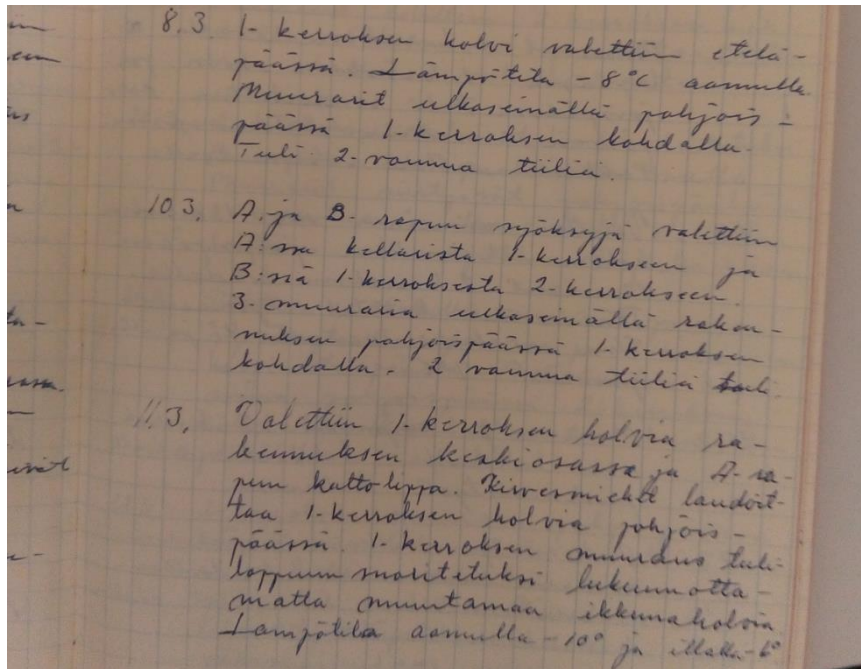 8.3. 1-kerroksen holvi valettiin etelä-
päässä. Lämpötila -8°C aamulla.
Muurarit ulkoseinällä pohjois-
päässä 1-kerroksen kohdalla.
Tuli 2-vaunua tiiliä.
10 3. A. ja B- rapun syöksyjä valettiin
A:ssa kellarista 1-kerrokseen ja
B:siä 1-kerroksesta 2-kerrokseen.
3-muuraria ulkoseinällä raken-
nuksen pohjoispäässä 1-kerroksen
kohdalla. 2 vaunua tiiliä tuli.
11.3. Valettiin 1-kerroksen holvia ra-
kennuksen keskiosassa ja A-ra-
pun kattolippa. Kirvesmiehet laudoit-
taa 1-kerroksen holvia pohjois-
päässä. 1-kerroksen muuraus tuli
loppuun suoritetuksi lukuunotta-
matta muutamaa ikkunaholvia.
Lämpötila aamulla -10° ja illalla -6°